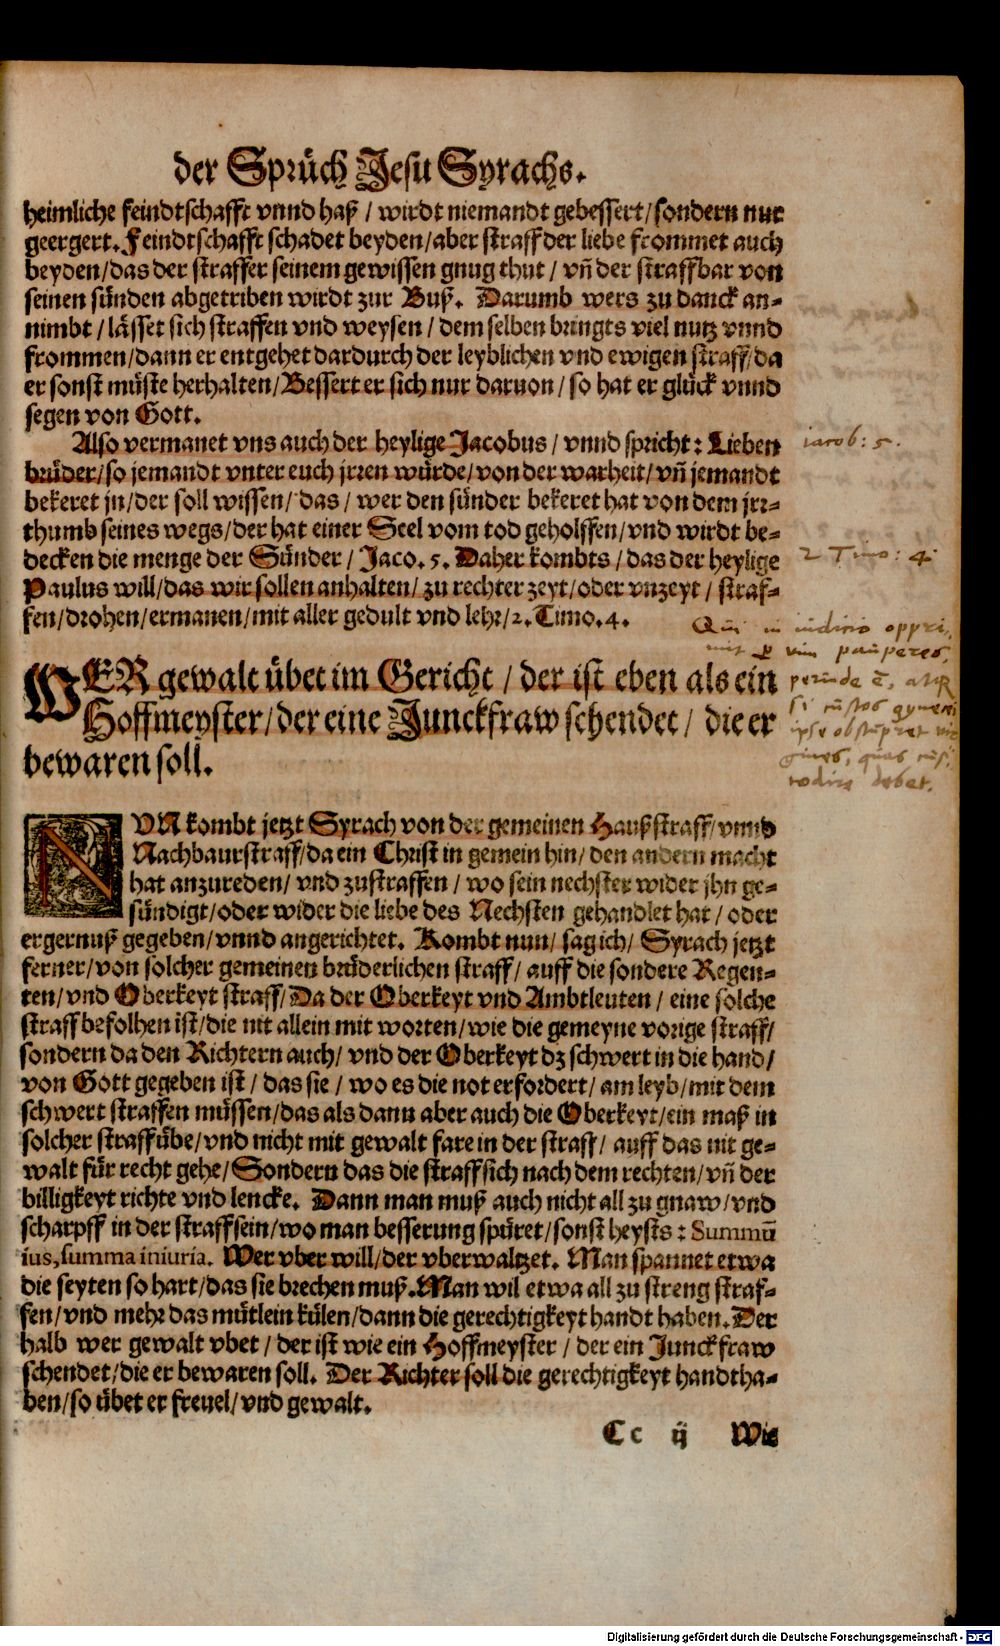 der Sprüch Jesu Syrachs.
heimliche feindtschafft vnnd haß / wirdt niemandt gebessert / sondern nur
geergert. Feindtschafft schadet beyden / aber straff der liebe frommet auch
beyden / das der straffer seinem gewissen gnug thut / vñ der straffbar von
seinen sünden abgetriben wirdt zur Buß. Darumb wers zu danck an-
nimbt / lässet sich straffen vnd weysen / dem selben bringts viel nutz vnnd
frommen / dann er entgehet dardurch der leyblichen vnd ewigen straff / da
er sonst müste herhalten / Bessert er sich nur daruon / so hat er glück vnnd
segen von Gott.
Also vermanet vns auch der heylige Jacobus / vnnd spricht: Lieben
brüder / so jemandt vnter euch jrren würde / von der warheit / vñ jemandt
bekeret jn / der soll wissen / das / wer den sünder bekeret hat von dem jrr-
thumb seines wegs / der hat einer Seel vom tod geholffen / vnd wirdt be-
decken die menge der Sünder / Jaco. 5. Daher kombts / das der heylige
Paulus will / das wir sollen anhalten / zu rechter zeyt / oder vnzeyt / straf-
fen / drohen / ermanen / mit aller gedult vnd lehr / 2. Timo. 4.
iacob: 5.
2 Timo: 4
WER gewalt übet im Gericht / der ist eben als ein
Hoffmeyster / der eine Junckfraw schendet / die er
bewaren soll.
Qui in iudicio oppri,
mit p vim pauperes,
perinde ē, atq
si custos gynecei
ipse obstupret vir
gines, quas cus,
todire debet.
NVN kombt jetzt Syrach von der gemeinen Haußstraff / vnnd
Nachbaurstraff / da ein Christ in gemein hin / den andern macht
hat anzureden / vnd zustraffen / wo sein nechster wider jhn ge-
sündigt / oder wider die liebe des Nechsten gehandlet hat / oder
ergernuß gegeben / vnnd angerichtet. Kombt nun / sag ich / Syrach jetzt
ferner / von solcher gemeinen brüderlichen straff / auff die sondere Regen-
ten / vnd Oberkeyt straff / Da der Oberkeyt vnd Ambtleuten / eine solche
straff befolhen ist / die nit allein mit worten / wie die gemeyne vorige straff /
sondern da den Richtern auch / vnd der Oberkeyt dz schwert in die hand /
von Gott gegeben ist / das sie / wo es die not erfordert / am leyb / mit dem
schwert straffen müssen / das als dann aber auch die Oberkeyt / ein maß in
solcher straff übe / vnd nicht mit gewalt fare in der straff / auff das nit ge-
walt für recht gehe / Sondern das die straff sich nach dem rechten / vñ der
billigkeyt richte vnd lencke. Dann man muß auch nicht all zu gnaw / vnd
scharpff in der straff sein / wo man besserung spüret / sonst heysts: Summū
ius, summa iniuria. Wer vber will / der vberwaltzet. Man spannet etwa
die seyten so hart / das sie brechen muß. Man wil etwa all zu streng straf-
fen / vnd mehr das mütlein külen / dann die gerechtigkeyt handt haben. Der
halb wer gewalt vbet / der ist wie ein Hoffmeyster / der ein Junckfraw
schendet / die er bewaren soll. Der Richter soll die gerechtigkeyt handtha-
ben / so übet er freuel / vnd gewalt.
Cc ij Wie
Digitalisierung gefördert durch die Deutsche Forschungsgemeinschaft - DFG